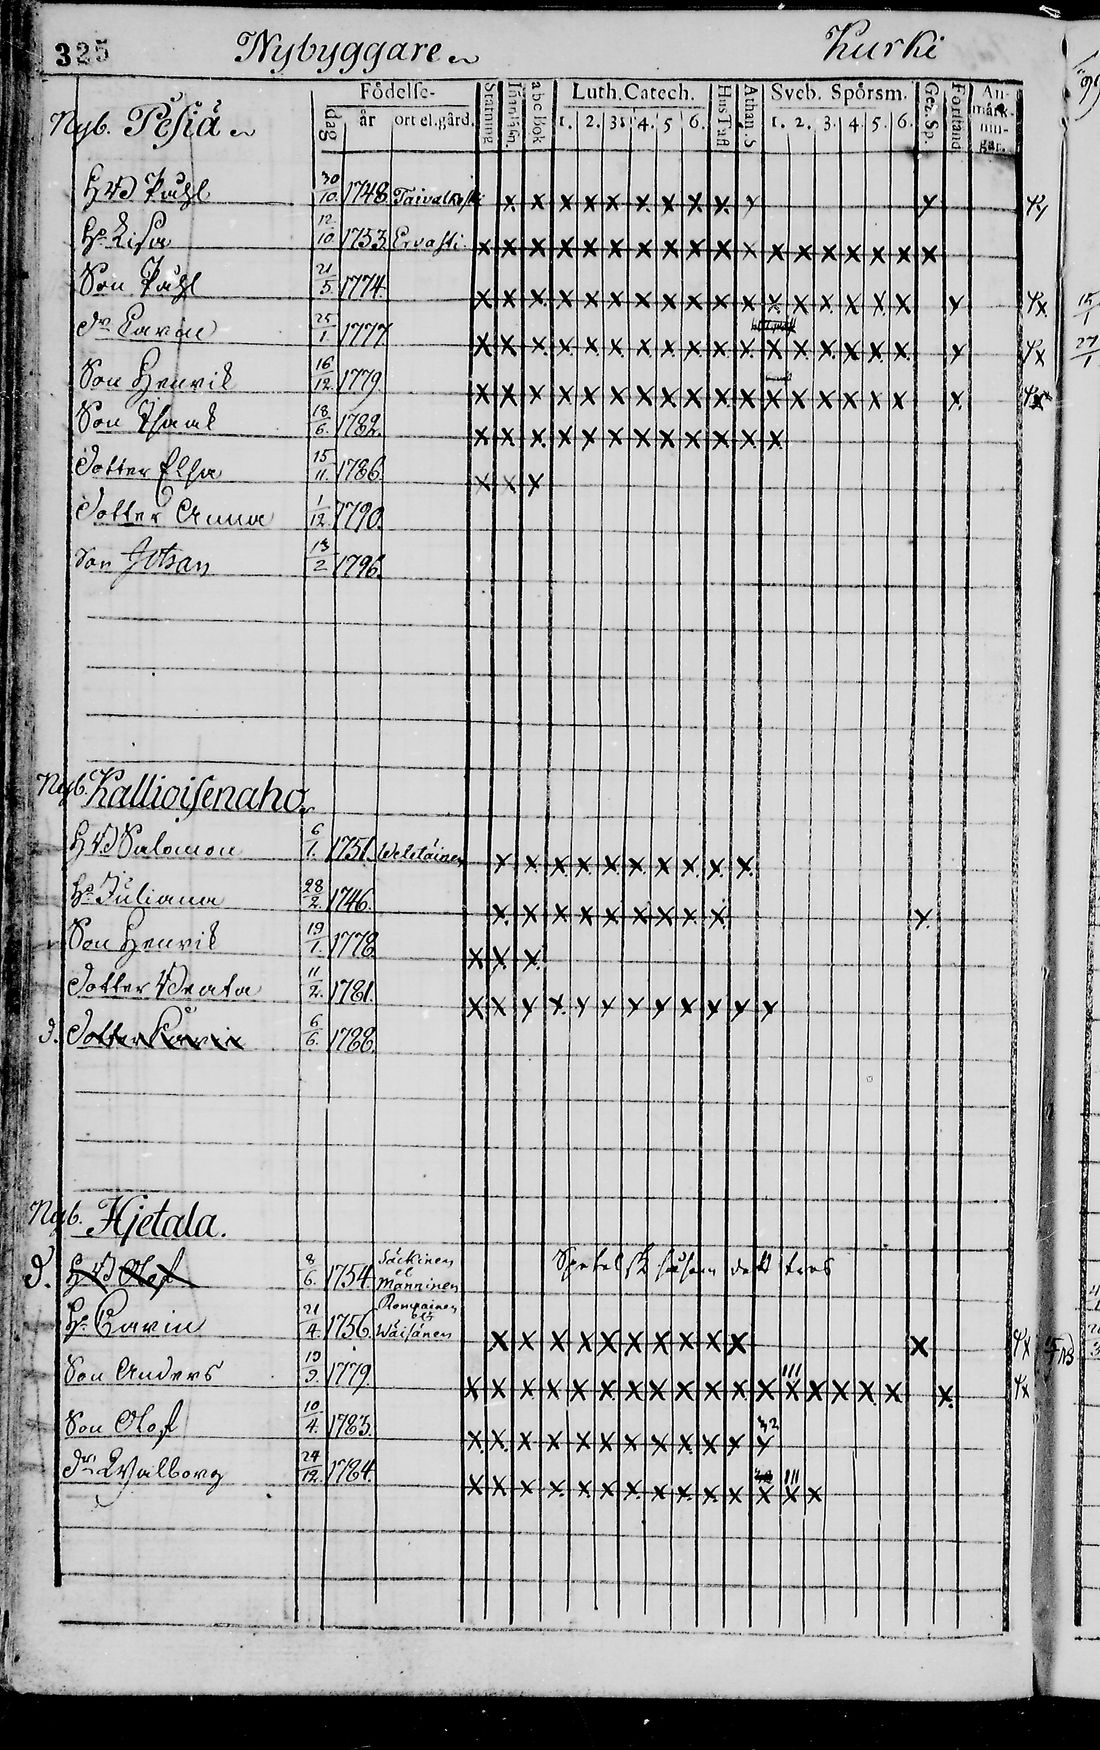 325 Nybyggare Kurki
Födelse-
dag år ort el. gård.
Stafning Innanläsn. abc Bok Luth. Catech. 1. 2. 3. 4. 5 6. Hus Tafl Athan. S Sveb. Spörsm. 1. 2. 3. 4. 5. 6. Gez. Sp. Förstånd An-märk-nin-gar.
Nyb. Pesiä
HB Påhl 30/10. 1748. Taivalkoski x x x x x x x x x x x
H° Lisa 12/10 1753 Ervasti x x x x x x x x x x x x x x x x x x
Son Påhl 21/5. 1774 x x x x x x x x x x x x x x x x x x
dr Carin 25/1 1777 x x x x x x x x x x x x x x x x x x
Son Henrik 16/12. 1779. x x x x x x x x x x x x x x x x x x
Son Isaak 18/6. 1782. x x x x x x x x x x x x
Dotter Elsa 15/11. 1786. x x x
Dotter Anna 1/12 1790.
Son Johan 13/2 1796.
Nyb. Kallioisenaho
HB Salomon 6/1. 1751. Weletäinen x x x x x x x x x x
H° Juliana 28/2. 1746. x x x x x x x x x x
Son Henrik 19/1. 1778 x x x
Dotter Beata 11/2. 1781. x x x x x x x x x x x x
d. Dotter Karin 6/6. 1788.
Nyb. Hjetala.
d. HB Olof 8/6. 1754. Säkkinen el Manninen
H° Carin 21/4. 1756. Rompainen Wäisänen x x x x x x x x x x x
Son Anders 19/9. 1779. x x x x x x x x x x x x x x x x x x
Son Olof 10/4. 1783. x x x x x x x x x x x x
dr Walborg 24/12. 1784. x x x x x x x x x x x x x x